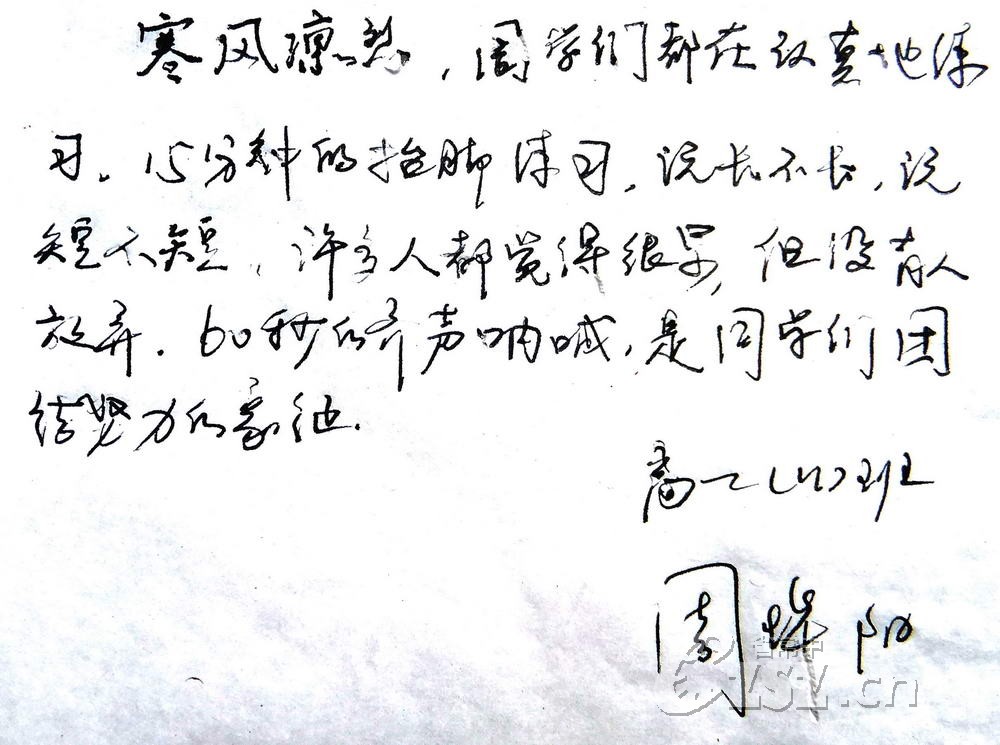 寒风凛烈，同学们都在认真地练
习。15分钟的抬脚练习，说长不长，说
短不短，许多人都觉得很累，但没有人
放弃。60秒的齐声呐喊，是同学们团
结努力的象征.
高一(4)班
周 阳
.cn